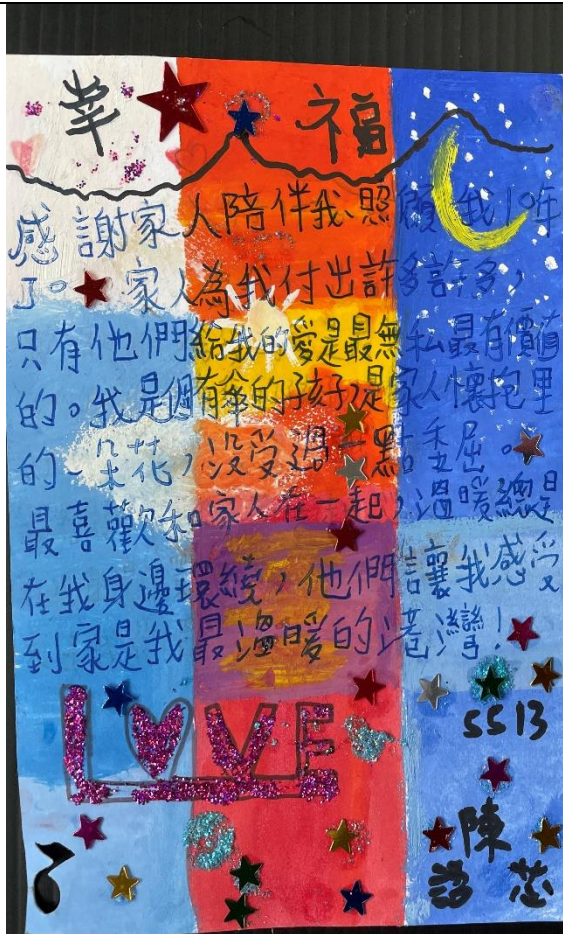 幸福
感謝家人陪伴我、照顧我10年
了。家人為我付出許多許多，
只有他們給我的愛是最無私最有價值
的。我是個有幸的孩子，是家人懷抱里
的一朵花，沒受過一點委屈。
最喜歡和家人在一起，溫暖總是
在我身邊環繞，他們讓我感受
到家是我最溫暖的港灣！
LOVE
5513
陳
芯